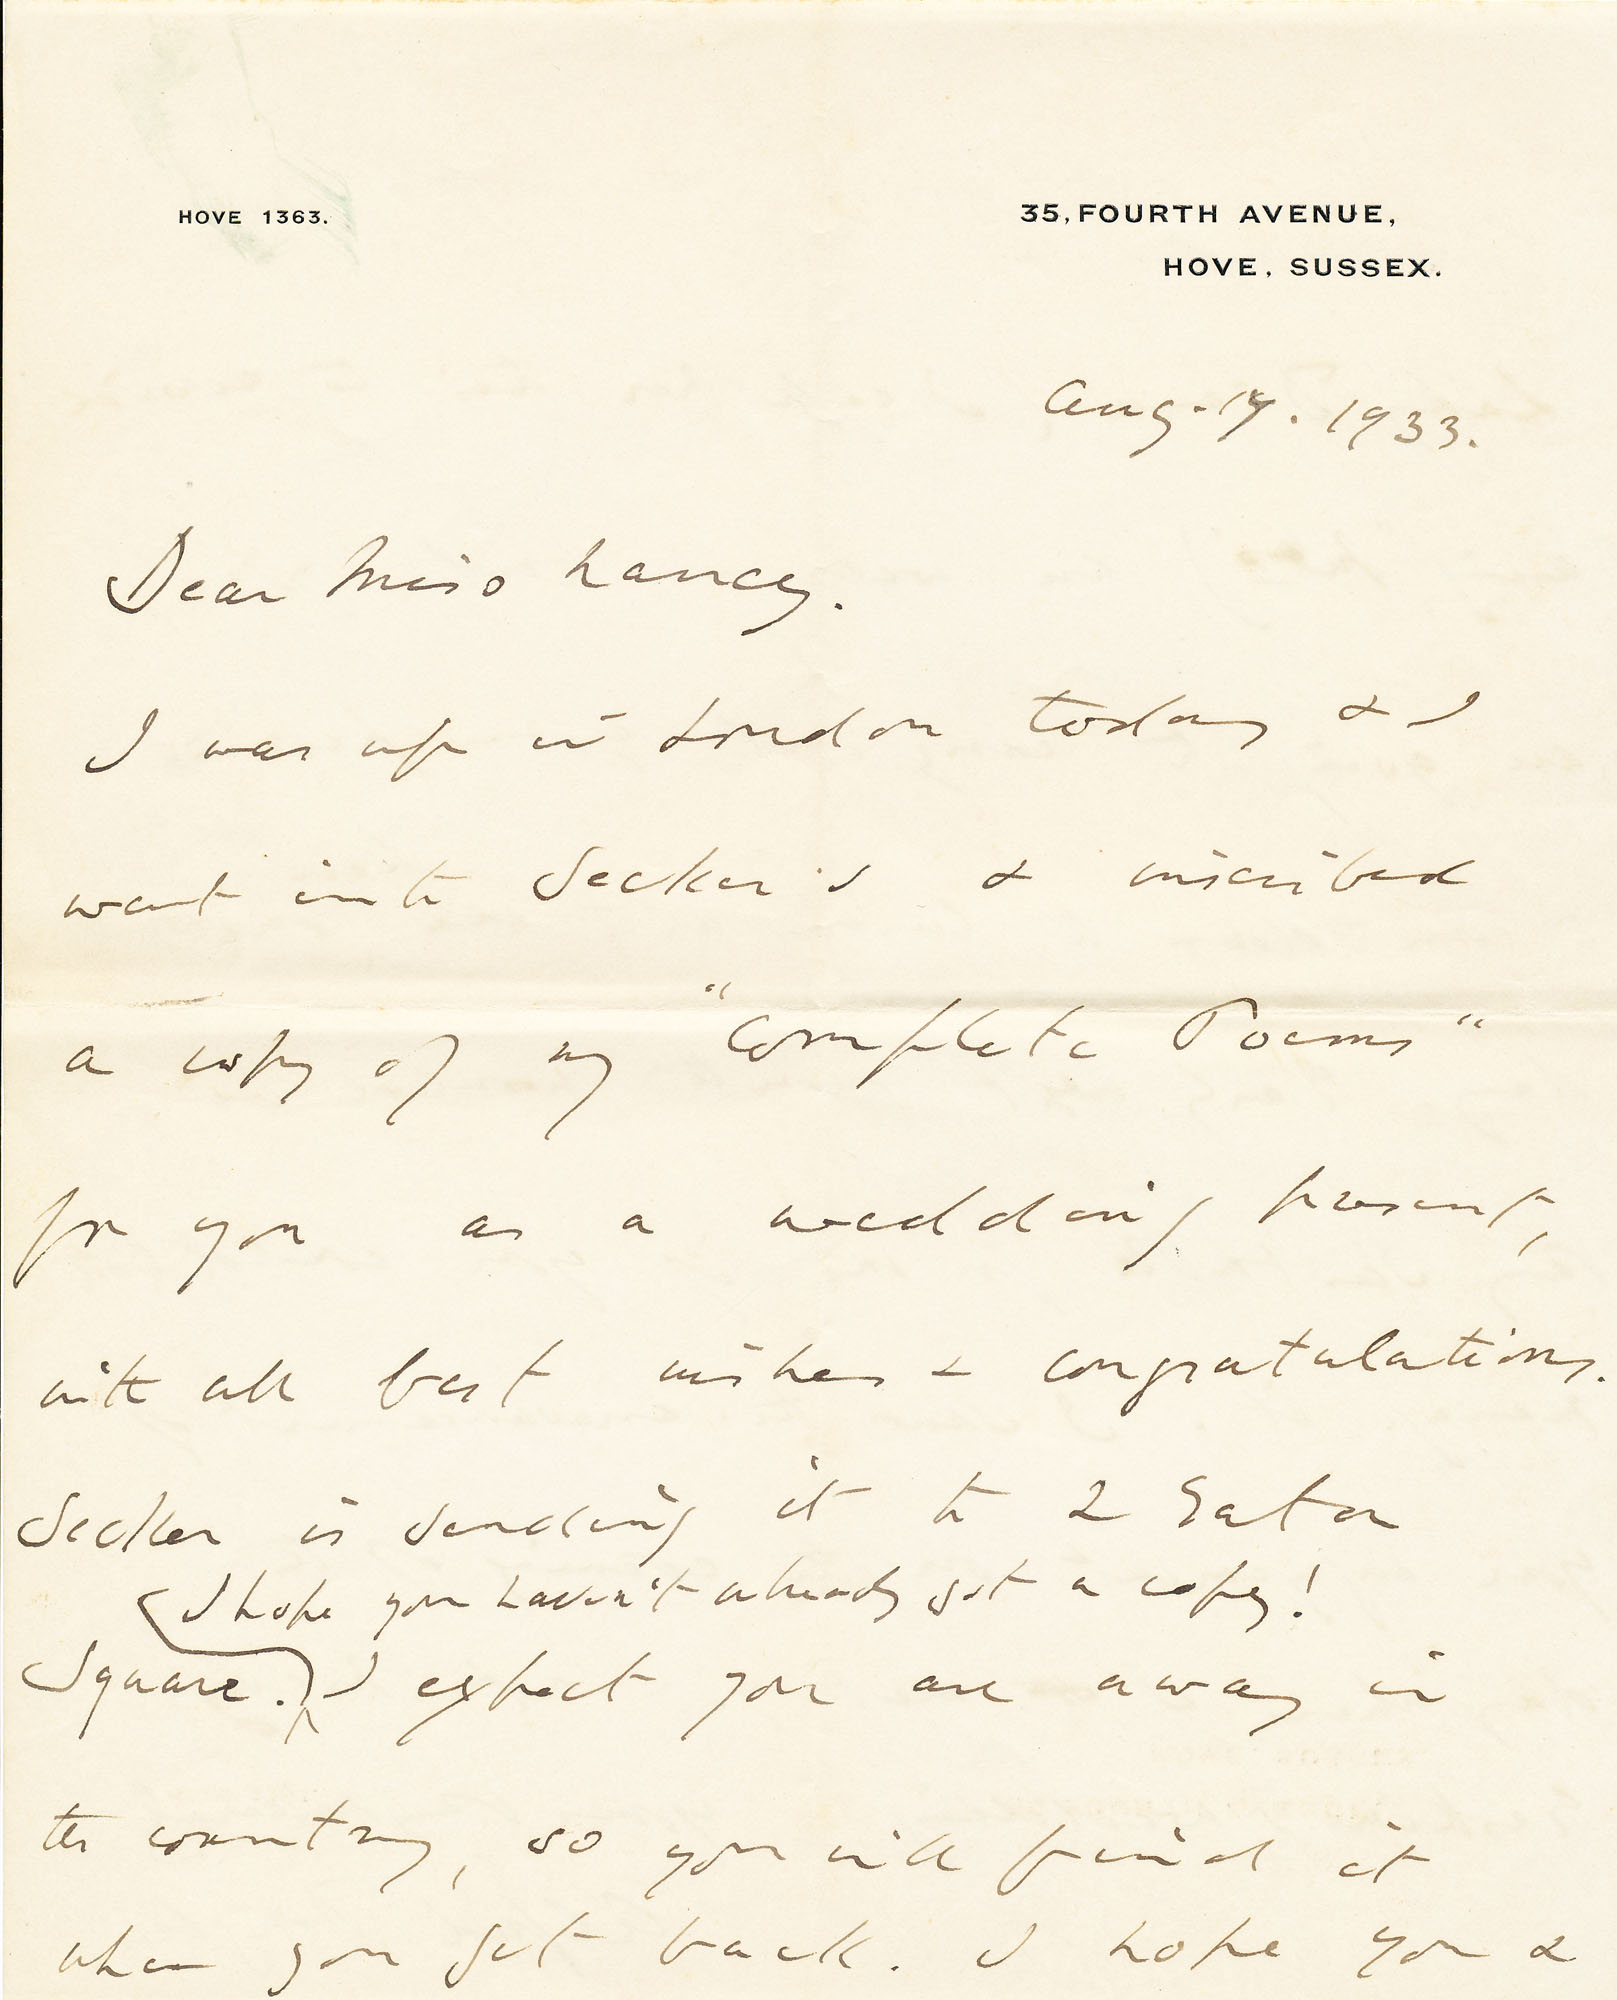 HOVE 1363.
35, FOURTH AVENUE,
HOVE, SUSSEX.
Aug. 14. 1933.
Dear Miss Nancy.
I was up in London today & I
went into Secker's & inscribed
a copy of my "Complete Poems"
for you as a wedding present,
with all best wishes & congratulations.
Secker is sending it to 2 Eaton
I hope you haven't already got a copy!
Square. I expect you are away in
the country, so you will find it
when you get back. I hope you &